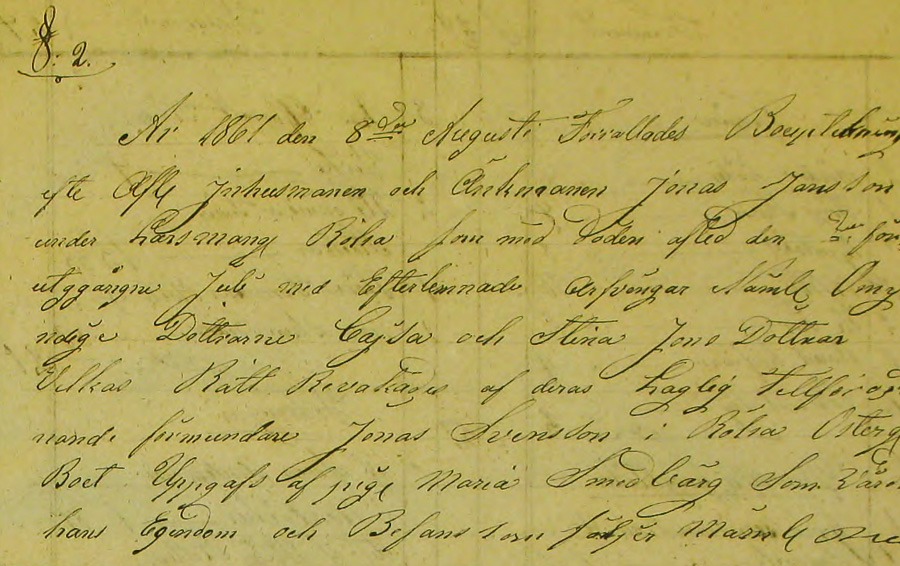 8: 2.
År 1861 den 8de Augusti Förrattades Bouptekning
efte Afl Inhusmanen och Änkmanen Jonas Jansson
under Larsmang Rölsa som med döden afled den för
utggångne Juli med Efterlemnade Arfvingar Nämle Omy
ndige Dottrarne Cajsa och Stina Jons Dottrar
Vilkas Rätt Bevakades af deras Laglig tillförord
nande förmundare Jonas Svensson i Rölsa Österg
Boet Uppgafs af pige Maria Smedbärg Som
hans Egindom och Befans som följer Nämle